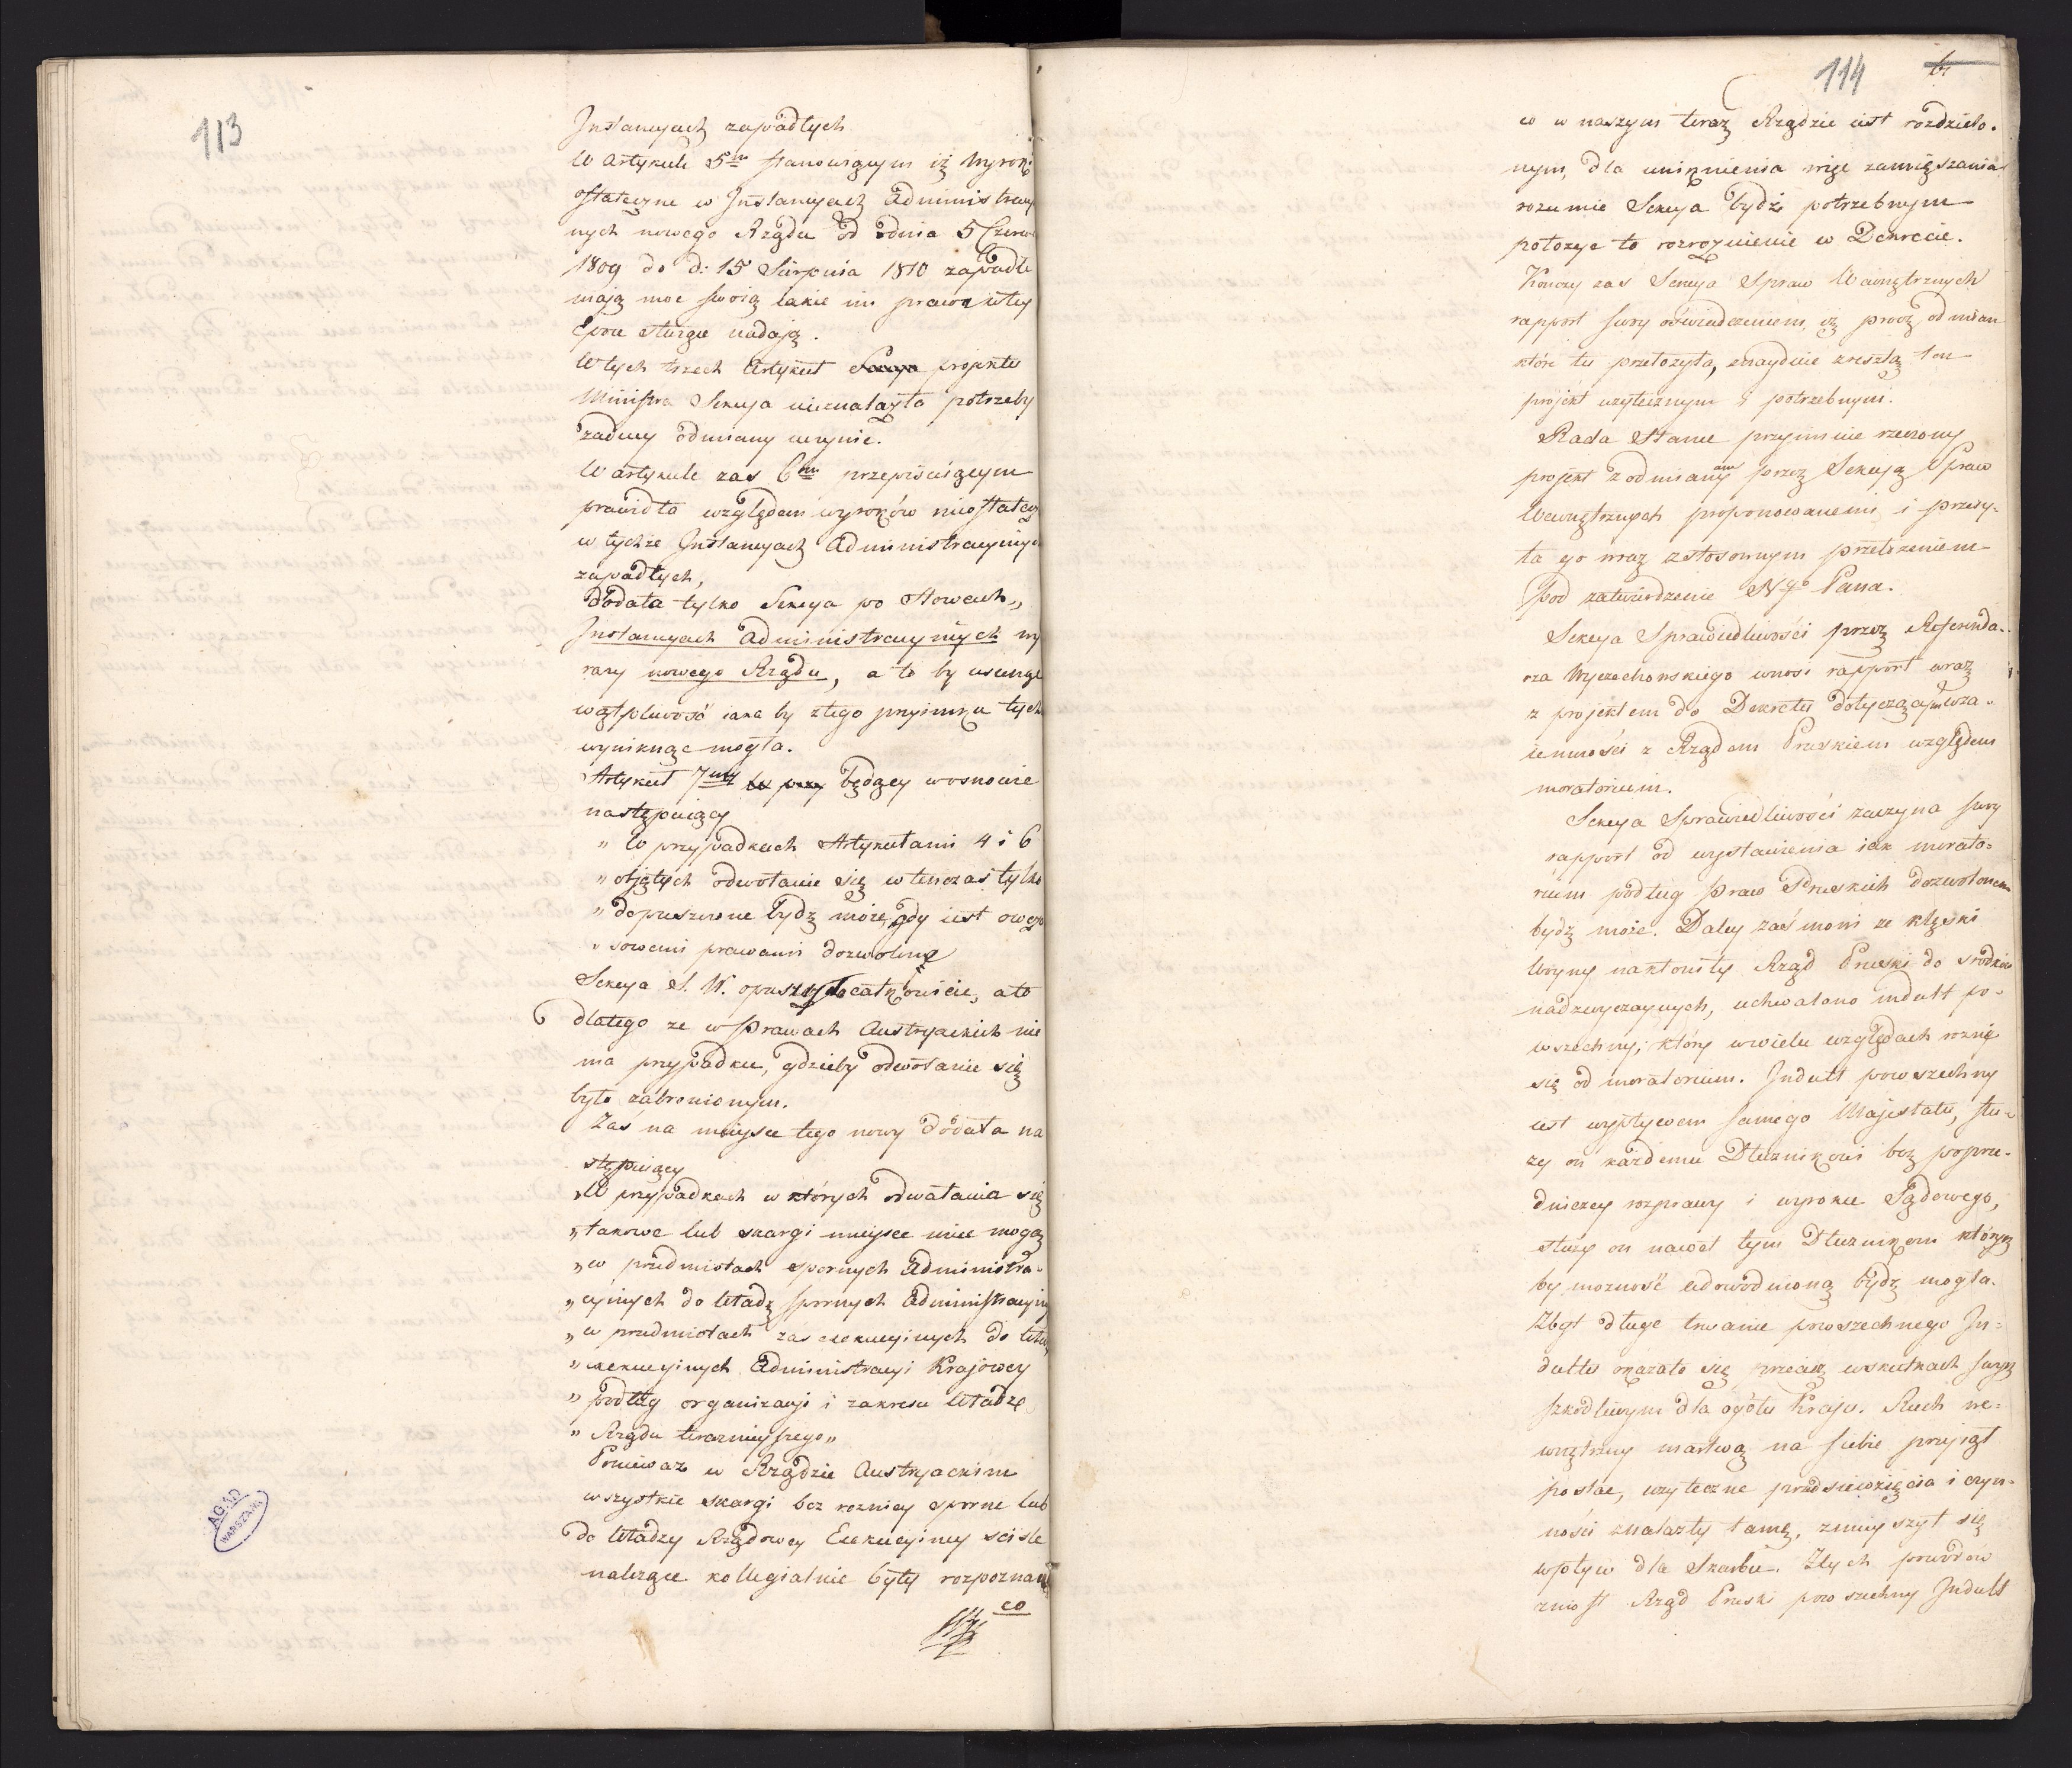 113
Instancyach zapadłych
W artykule 5m stanowiącym iż Wyroki
ostateczne w Instancyach Administracy
nych nowego Rządu od dnia 5 Czerw
1809 do d: 15 Sierpnia 1810 zapadłe
mają moc swoią iakie im prawa w tey
Epoce służące nadają.
W tych trzech Artykuł projektu
Ministra Sekcya nieznalazła potrzeby
żadney odmiany uczynić.
W artykule zas 6m przepisuiącym
prawidła względem wyroków nieostatecz
w tychże Instancyach Administracyinych
zapadłych,
dodała tylko Sekcya po słowach„
Instancyach Administracyinych wy
razy nowego Rządu, a to by usunąć
wątpliwość iaka by z tego przyimku tych
wyniknąć mogła.
Artykuł 7my będący w osnowie
następuiącey
„ W przypadkach Artykułami 4 i 6
„ objętych odwołanie się wtenczas tylko
„ dopuszczone bydź może, gdy iest owcze
„ sowemi prawami dozwolone
Sekcya S. W. opuszyła całkowicie, a to
dlatego ze w prawach Austryackich nie
ma przypadku, gdzieby odwołanie się
było zabronionym.
Zaś na mieysce tego nowy dodała na
stępuiący
„W przypadkach w których odwołania się
„takowe lub skargi mieysce mieć mogą
„w przedmiotach spornych Administra-
„cyinych do Władz spornych Administracyiny
„w przedmiotach zas exekucyinych do Wła
„exekucyinych Administracyi Kraiowey
„ podług organizacyi i zakresu Władzę
„ Rządu teraznieyszego„
Ponieważ w Rządzie Austryackim
wszystkie skargi bez roznicy sporne lub
do Władzy Rządowey Exekucyiney sciśle
należące kollegialnie były rozpoznane
co
AGAD
WARSZAWA
114
co w naszym teraz Rządzie iest rozdzielo-
nym, dla uniknienia więc zamięszania
rozumie Sekcya bydź potrzebnym
położyć to rozroznienie w Dekrecie.
Kończy zas Sekcya Spraw Wewnętrznych
rapport swoy oświadczeniem, iż procz odmian
które tu przełożyła, znayduie zresztą ten
projekt uzytecznym i potrzebnym.
Rada Stanu przyimuie rzeczony
projekt z odmianami przez Sekcyą Spraw
Wewnętrznych proponowanemi i przesy-
ła go wraz z stosownym przełożeniem
pod zatwierdzenie Ngo Pana.
Sekcya Sprawiedliwości przez Referenda-
rza Wyczechowskiego wnosi rapport wraz
z projektem do Dekretu dotyczącym wza-
iemności z Rządem Pruskiem względem
moratorium.
Sekcya Sprawiedliwości zaczyna swoy
rapport od wystawienia iak morato-
rium podług praw Pruskich dozwolonem
bydź może. Daley zaś mowi ze klęski
Woyny nakłoniły Rząd Pruski do srodków
nadzwyczaynych, uchwalono indult po-
wszechny, który w wielu względach rozni
się od moratorium. Indult powszechny
iest wypływem samego Majestatu, słu-
zy on każdemu Dłuznikowi bez poprze-
dniczey rozprawy i wyroku Sądowego,
służy on nawet tym Dłuznikom których
by mozność udowodnioną bydź mogła.
Zbyt długe trwanie powszechnego In-
dultu okazało się przecież w skutkach swych
szkodliwym dla ogółu Kraju. Ruch we-
wnętrzny martwą na siebie przyjął
postać, uzyteczne przedsiewzięcia i czyn-
ności znalazły tamę, zmnieyszył się
wpływ dla Skarbu. Z tych powodów
zniosł Rząd Pruski powszechny Indult